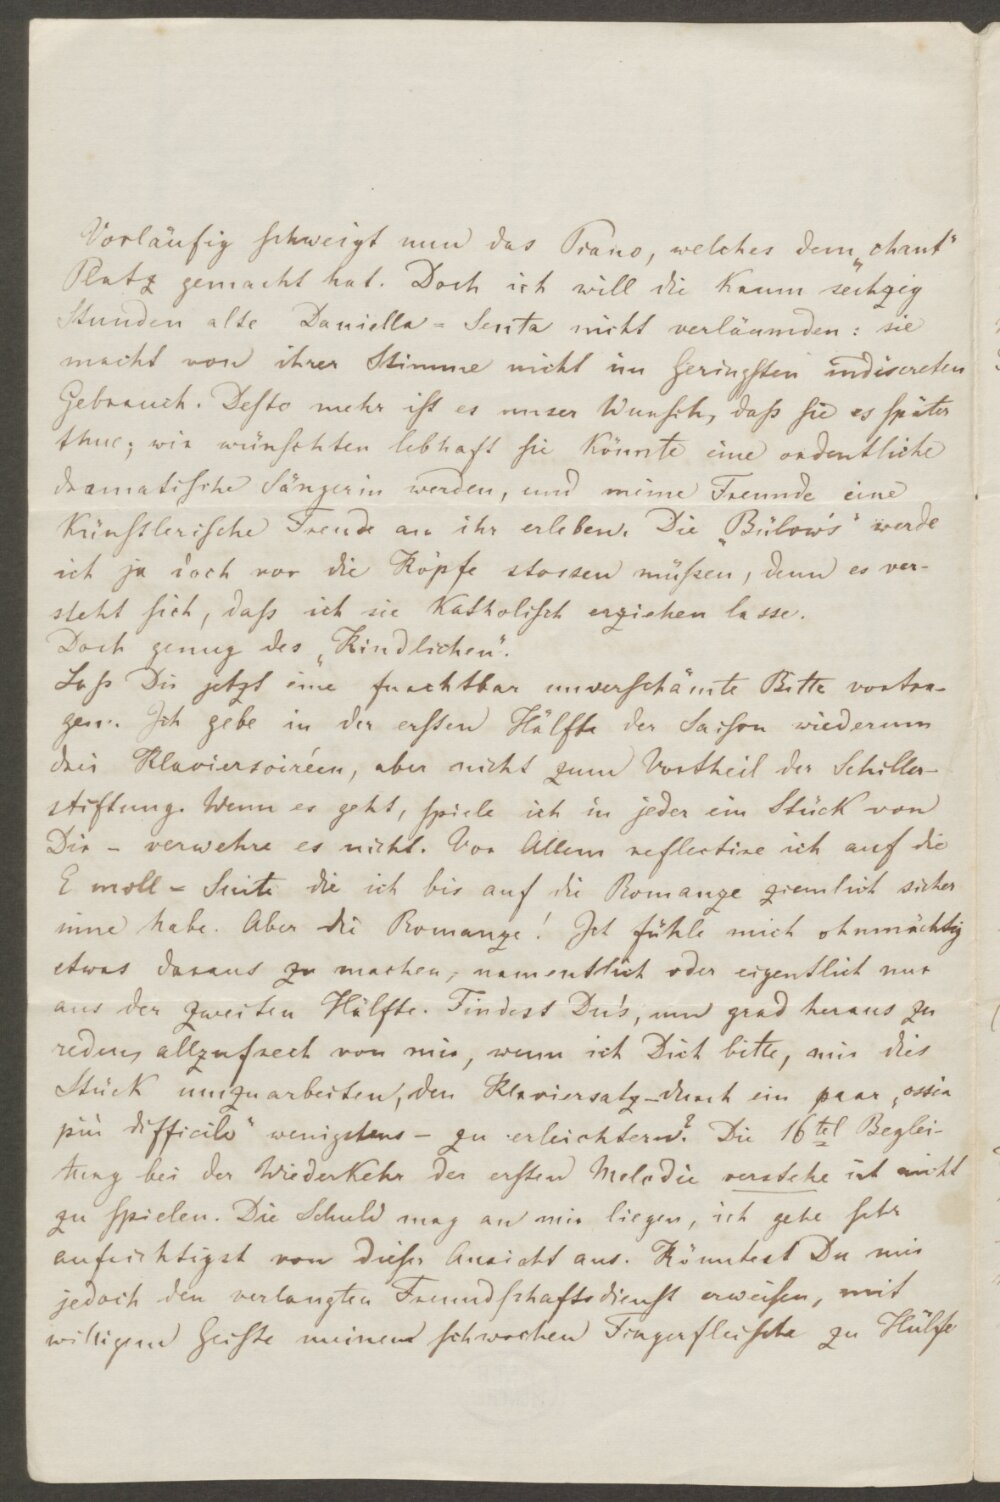 Vorläufig schweigt nun das Piano, welches dem „chant“
Platz gemacht hat. Doch ich will die kaum sechzig
Stunden alte Daniella-Senta nicht verläumden: sie
macht von ihrer Stimme nicht im Geringsten indiscreten
Gebrauch. Desto mehr ist es unser Wunsch, daß sie es später
thue; wir wünschten lebhaft sie könnte eine ordentliche
dramatische Sängerin werden, und meine Freunde eine
künstlerische Freude an ihr erleben. Die „Bülow's“ werde
ich ja doch vor die Köpfe stossen müßen, denn es ver-
steht sich, daß ich sie katholisch erziehen lasse.
Doch genug des „Kindlichen“.
Laß Dir jetzt eine furchtbar unverschämte Bitte vortra-
gen. Ich gebe in der ersten Hälfte der Saison wiederum
drei Klaviersoiréen, aber nicht zum Vortheil der Schiller-
stiftung. Wenn es geht, spiele ich in jeder ein Stück von
Dir – verwehre es nicht. Vor Allem reflectire ich auf die
E moll-Suite die ich bis auf die Romanze ziemlich sicher
inne habe. Aber die Romanze! Ich fühle mich ohnmächtig
etwas daraus zu machen, namentlich oder eigentlich nur
aus der zweiten Hälfte. Findest Du's, um grad heraus zu
reden, allzufrech von mir, wenn ich Dich bitte, mir dies
Stück umzuarbeiten, den Klaviersatz – durch ein paar „ossia
più difficile“ wenigstens – zu erleichtern? Die 16tel Beglei-
tung bei der Wiederkehr der ersten Melodie verstehe ich nicht
zu spielen. Die Schuld mag an mir liegen, ich gehe sehr
aufrichtigst von dieser Ansicht aus. Könntest Du mir
jedoch den verlangten Freundschaftsdienst erweisen, mit
willigem Geiste meinem schwachen Fingerfleische zu Hülfe